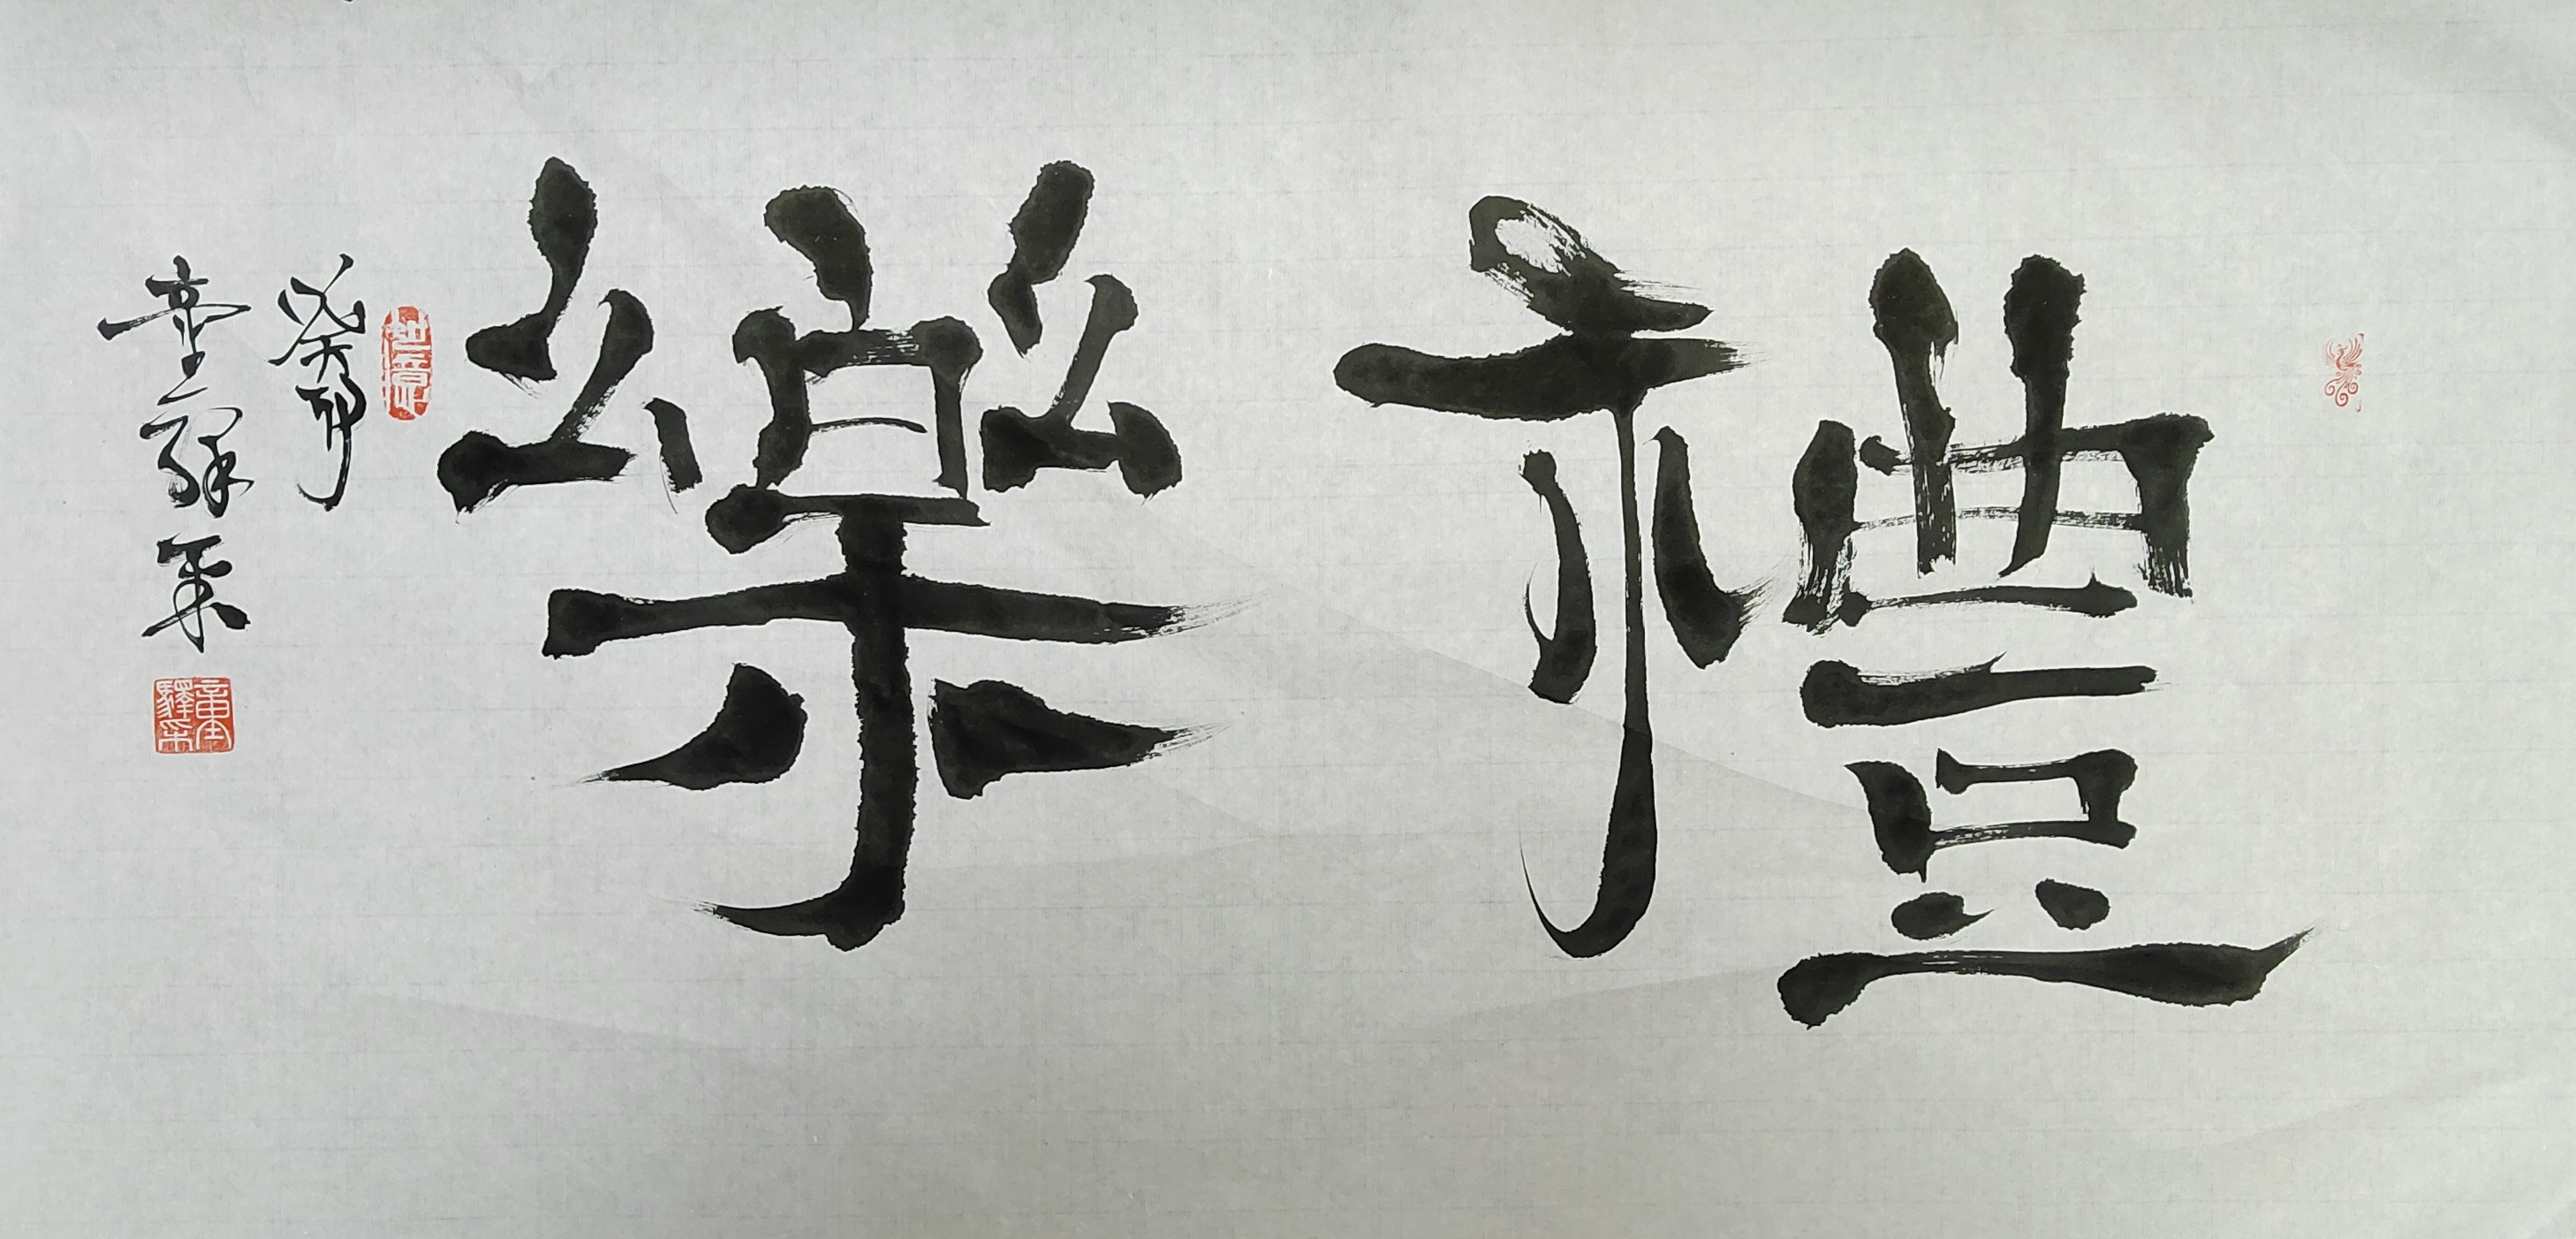 禮樂
癸卯
童驛采
童驛采